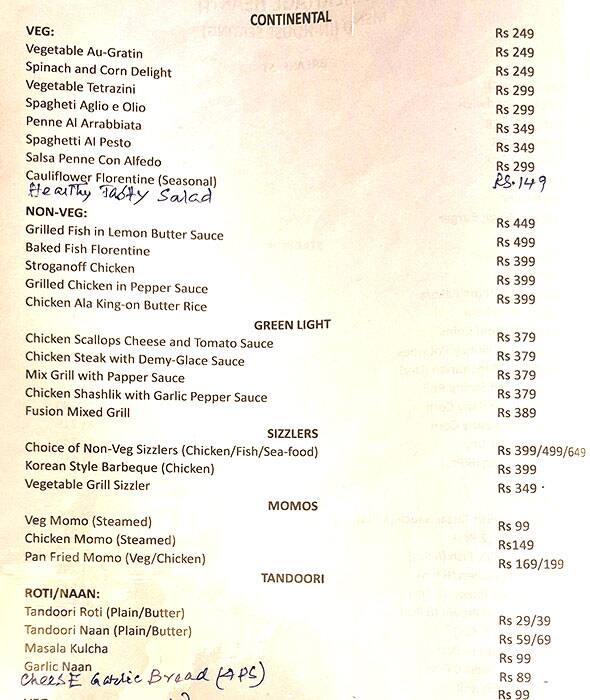 CONTINENTAL
VEG:
Vegetable Au-Gratin Rs 249
Spinach and Corn Delight Rs 249
Vegetable Tetrazini Rs 249
Spagheti Aglio e Olio Rs 299
Penne Al Arrabbiata Rs 299
Spaghetti Al Pesto Rs 349
Salsa Penne Con Alfedo Rs 349
Cauliflower Florentine (Seasonal) Rs 299
Healthy Tasty Salad RS.149
NON-VEG:
Grilled Fish in Lemon Butter Sauce Rs 449
Baked Fish Florentine Rs 499
Stroganoff Chicken Rs 399
Grilled Chicken in Pepper Sauce Rs 399
Chicken Ala King-on Butter Rice Rs 399
GREEN LIGHT
Chicken Scallops Cheese and Tomato Sauce Rs 379
Chicken Steak with Demy-Glace Sauce Rs 379
Mix Grill with Papper Sauce Rs 379
Chicken Shashlik with Garlic Pepper Sauce Rs 379
Fusion Mixed Grill Rs 389
SIZZLERS
Choice of Non-Veg Sizzlers (Chicken/Fish/Sea-food) Rs 399/499/649
Korean Style Barbeque (Chicken) Rs 399
Vegetable Grill Sizzler Rs 349
MOMOS
Veg Momo (Steamed) Rs 99
Chicken Momo (Steamed) Rs149
Pan Fried Momo (Veg/Chicken) Rs 169/199
TANDOORI
ROTI/NAAN:
Tandoori Roti (Plain/Butter) Rs 29/39
Tandoori Naan (Plain/Butter) Rs 59/69
Masala Kulcha Rs 99
Garlic Naan Rs 89
CheesE Garlic Bread (4PS) Rs 99